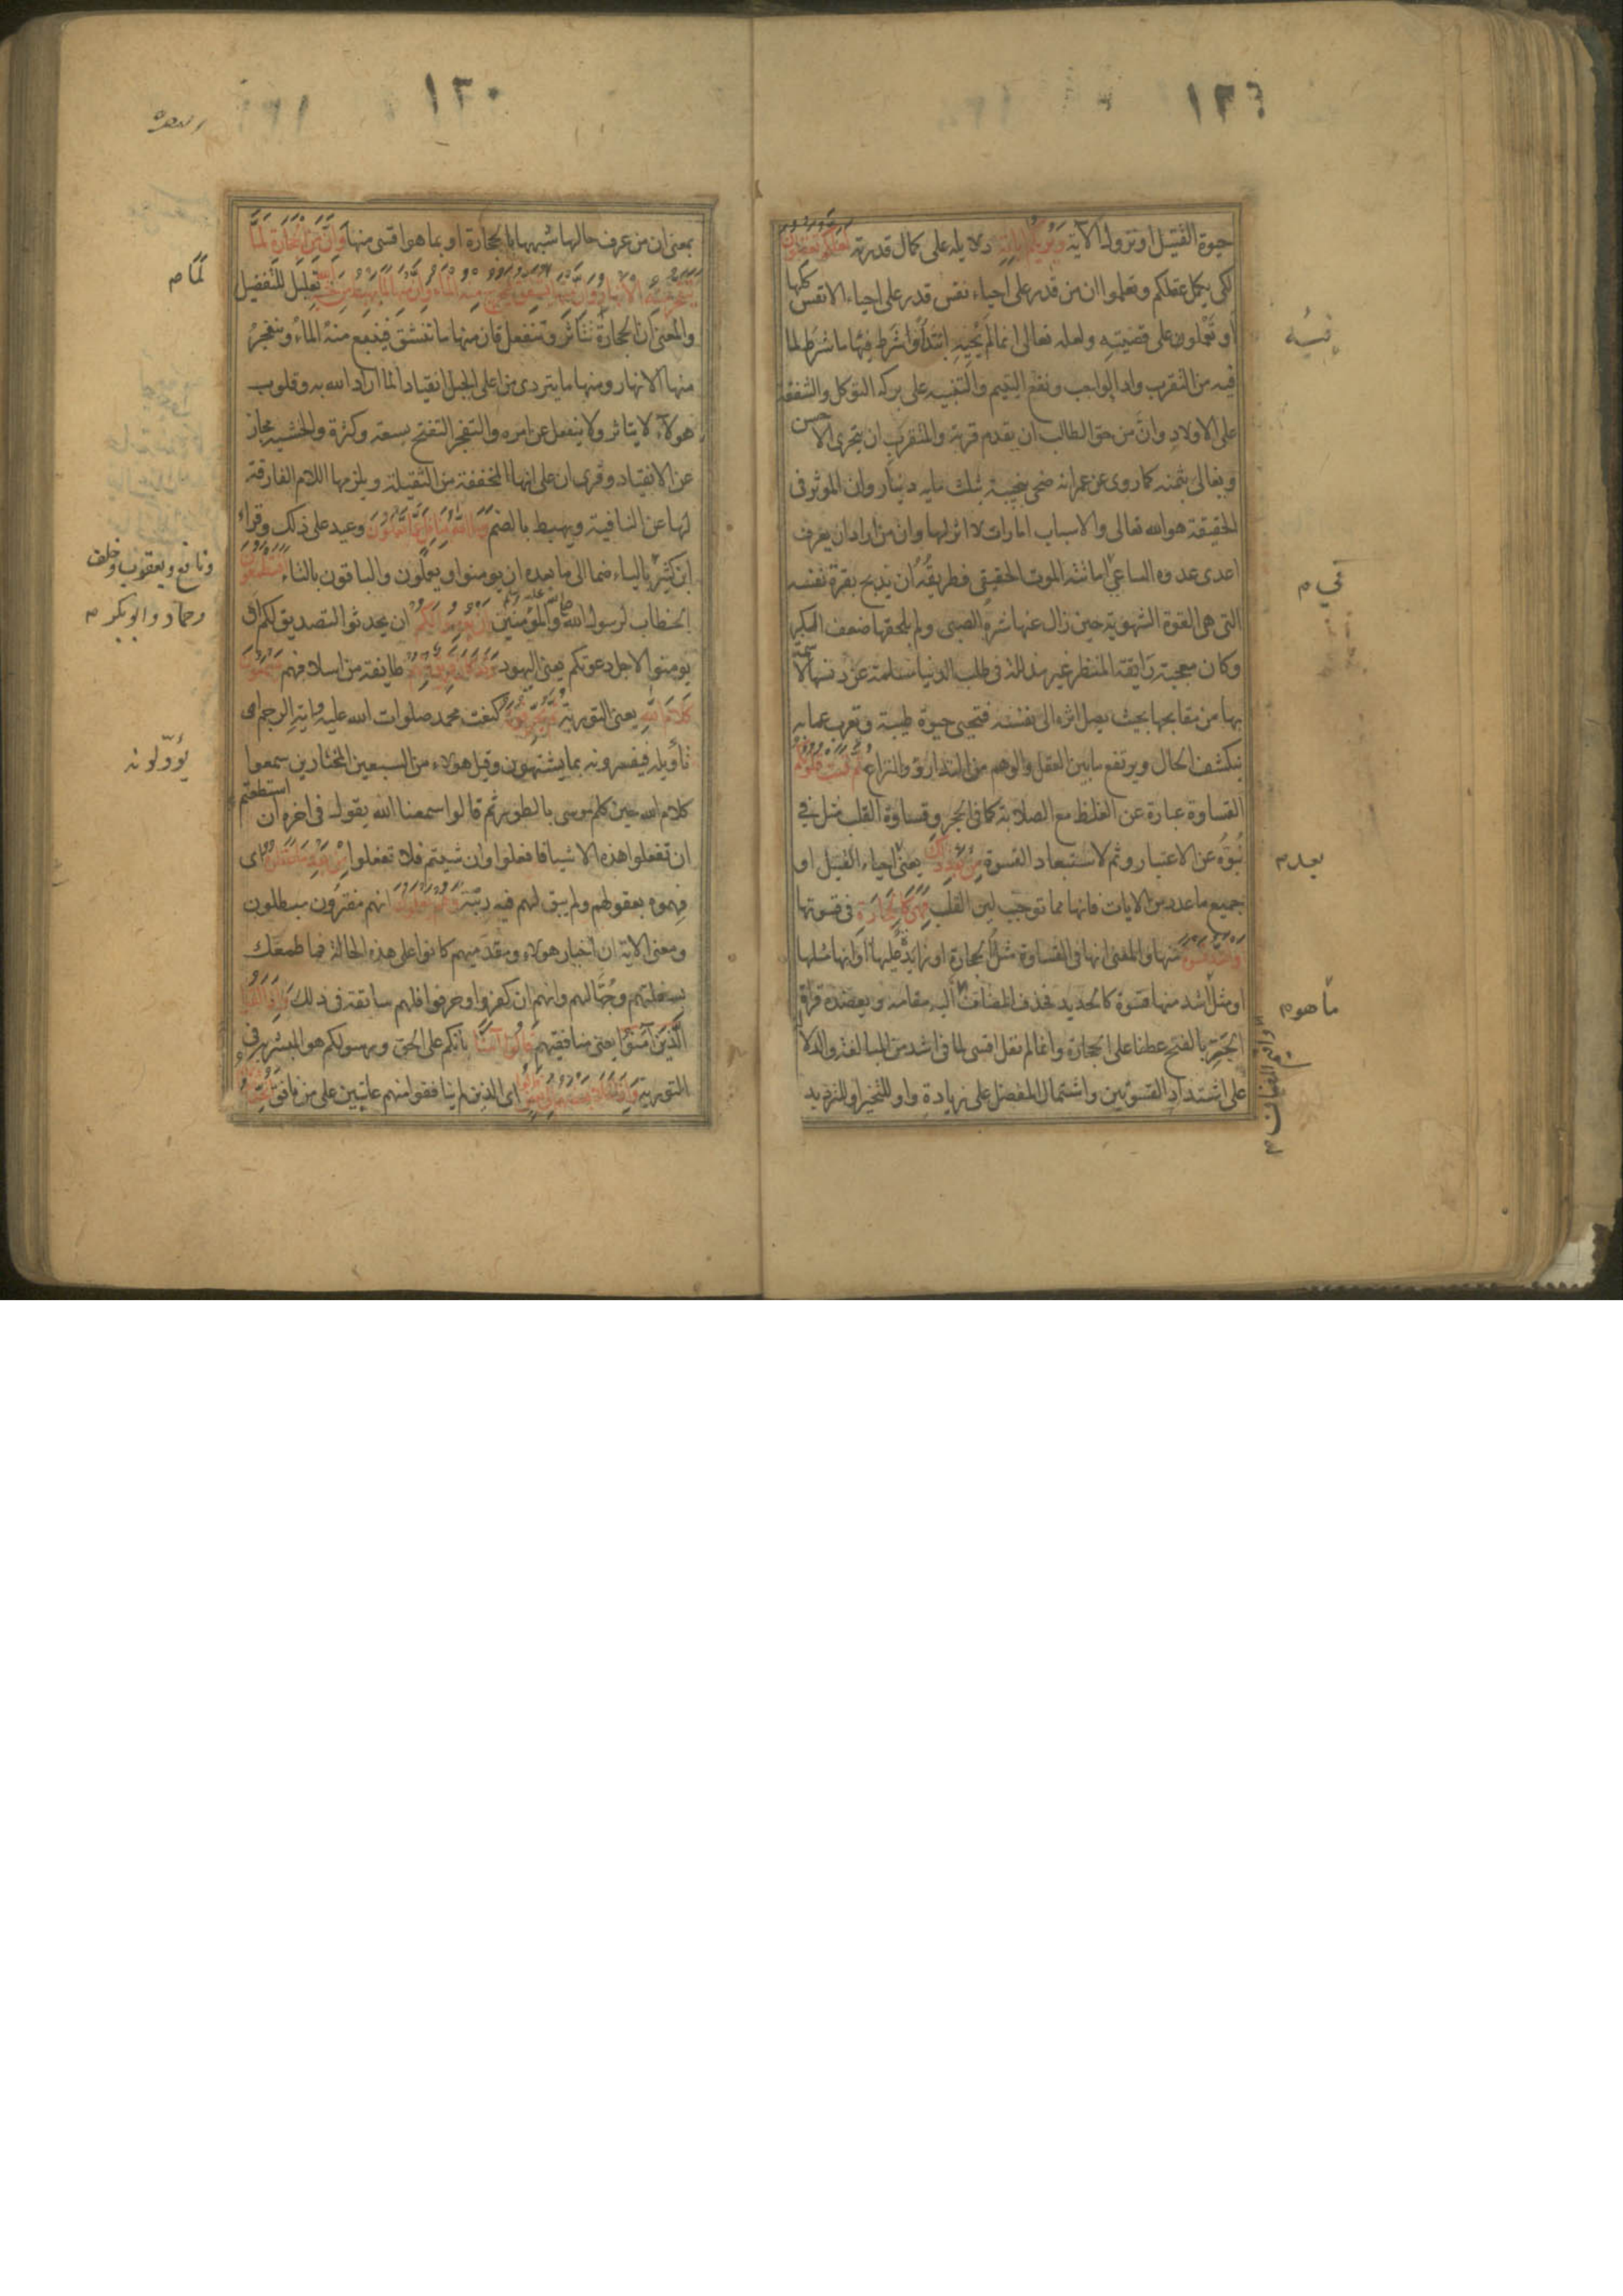 ١٢٩
حيوة القتيل او نزول الاية وَيُرِيكُم آيَاتِهِ دلايله على كمال قدرته لَعَلَّكُم تَعْقِلُونَ
لكى يكمل عقلكم وتعلموا ان من قدر على احياء نفس قدر على احياء الانفس كلها
او تَعْملون على قضيته ولعله تعالى انما لم يُحيِه ابتداءً وشرط فيها ما شرط لما
فيه من التقرب واداء الواجب ونفع اليتيم والتنبيه على بركة التوكل والشفقة
على الاولاد وانّ من حق الطالب ان يقدم قربة والمتقرب ان يتحرى الاحسن
ويغالى بثمنه كما روى عن عمر انه ضحى بنجيبة بثلث ماية دينار وان الموثر فى
الحقيقة هو الله تعالى والاسباب امارات لا اثر لها وان من اراد ان يعرف
اعدى عدوه الساعى اماتته الموت الحقيقى فطريقُهُ ان يذبح بقرة نفسه
التى هى القوة الشهوية حين زال عنها شره الصبى ولم يلحقها ضعف الكبر
وكان معجبة رَايقة المنظر غير مذللة فى طلب الدنيا مسلمة عن دنسها لا سمة
بها من مقابحها بحيث يصل اثره الى نفسه فتحيى حيوة طيبة وتعرب عما به
ينكشف الحال ويرتفع ما بين العقل والوهم من التدارؤ والنزاع ثُمَّ قَسَتْ قُلُوبُكُم
القساوة عبارة عن الغلظ مع الصلابة كما فى الحجر وقساوة القلب مثل فى
نُبُوِّه عن الاعتبار وثم لاستبعاد القسوة مِنْ بَعْدِ ذَلِكَ يعنى احياء القتيل او
جميع ما عدد من الايات فانها مما توجب لين القلب فَهِيَ كَالْحِجَارَةِ فى قسوتها
أَوْ أَشَدُّ قَسْوَةً منها والمعنى انها فى القساوة مثلُ الحجارة او زايدٌ عليها او انها مثلها
او مثل اشد منها قسوة كالحديد فحذف المضاف اليه مقامه ويعضده قراة
الجر بالفتح عطفا على الحجارة وانما لم نقل اقسى لما فى اشد من المبالغة والدلالة
على اشتداد القسوتين واشتمال المفضل على زيادة واو للتخيير او للترديد
بعد م
ما هو م
١٣٠
بمعنى ان من عرف حالها شبهها بالحجارة او بما هو اقسى منها وَإِنَّ مِنَ الْحِجَارَةِ لَمَا
يَتَفَجَّرُ مِنْهُ الْأَنْهَارُ وَإِنَّ مِنْهَا لَمَا يَشَّقَّقُ فَيَخْرُجُ مِنْهُ الْمَاءُ وَإِنَّ مِنْهَا لَمَا يَهْبِطُ مِنْ خَشْيَةِ تعليل للتفضيل
والمعنى انّ الحجارة تتاثر وتنفعل فان منها ما تنشق فينبع منهُ الماءُ وينفجرُ
منها الانهار ومنها ما يتردى من اعلى الجبل انقيادا لما اراد الله به وقلوب
هولاء لا يتاثر ولا ينفعل عن امره والتفجر التفتح بسعة وكثرة والخشية مجاز
عن الانقياد وقرى ان على انها المخففة من الثقيلة ويلزمها اللام الفارقة
لها عن النافية ويهبط بالضم وَمَا اللَّهُ بِغَافِلٍ عَمَّا تَعْمَلُونَ وعيد على ذلك وقراء
ابن كثير بالياء ضما الى ما بعده ان يومنوا ويعملون والباقون بالتاء أَفَتَطْمَعُونَ
الخطاب لرسول الله صلى الله عليه وسلم والمؤمنين أَنْ يُؤْمِنُوا لَكُمْ ان يحدثوا التصديق لكم او
يومنوا لاجل دعوتكم يعنى اليهود وَقَدْ كَانَ فَرِيقٌ مِنْهُمْ طايفة من اسلافهم يَسْمَعُونَ
كَلَامَ اللَّهِ يعنى التورية ثُمَّ يُحَرِّفُونَهُ كنعت محمد صلوات الله عليه واية الرجم او
تأويله فيفسرونه بما يشتهون وقيل هولاء من السبعين المختارين سمعوا
كلام الله حين كلم موسى بالطور ثم قالوا سمعنا الله يقول فى اخره ان استطعتم
ان تفعلوا هذه الاشيا فافعلوا وان شيتم فلا تفعلوا مِنْ بَعْدِ مَا عَقَلُوهُ اى
فهموه بعقولهم ولم يبق لهم فيه ريبة وَهُمْ يَعْلَمُونَ انهم مفترون مبطلون
ومعنى الاية ان احبار هولاء ومقدميهم كانوا على هذه الحالة فما طمعك
بسفلتهم وجُهّالهم وانهم ان كفروا وحرفوا فلهم سابقة فى ذلك وَإِذَا لَقُوا
الَّذِينَ آمَنُوا يعنى منافقيهم قَالُوا آمَنَّا بانكم على الحق ورسولكم هو المبشر به فى
التورية وَإِذَا خَلَا بَعْضُهُمْ إِلَى بَعْضٍ قَالُوا اى الذين لم ينافقوا منهم عاتبين على من نافق
لَمَا م
ونافع ويعقوب وخلف
وحماد وابو بكر م
يؤوّلونه